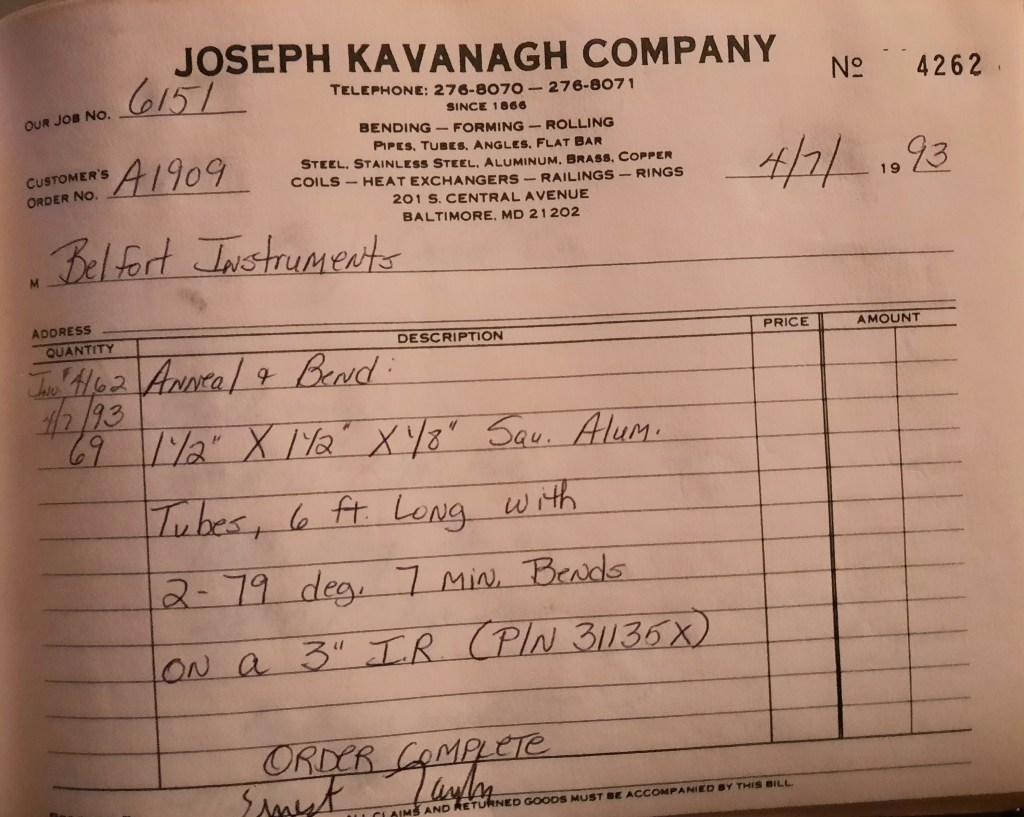 JOSEPH KAVANAGH COMPANY
Nº 4262
TELEPHONE: 276-8070 — 276-8071
SINCE 1866
OUR JOB NO. 6151
BENDING — FORMING — ROLLING
PIPES, TUBES, ANGLES, FLAT BAR
STEEL, STAINLESS STEEL, ALUMINUM, BRASS, COPPER
COILS — HEAT EXCHANGERS — RAILINGS — RINGS
201 S. CENTRAL AVENUE
BALTIMORE, MD 21202
CUSTOMER'S
ORDER NO. A1909
4/7/ 1993
M Belfort Instruments
ADDRESS
QUANTITY DESCRIPTION PRICE AMOUNT
Inv. # 4162 Anneal & Bend:
4/7/93
69 1 1/2" X 1 1/2" X 1/8" Squ. Alum.
Tubes, 6 ft. Long with
2- 79 deg. 7 Min. Bends
ON a 3" I.R. (P/N 31135X)
ORDER COMPLETE
Ernest
CLAIMS AND RETURNED GOODS MUST BE ACCOMPANIED BY THIS BILL